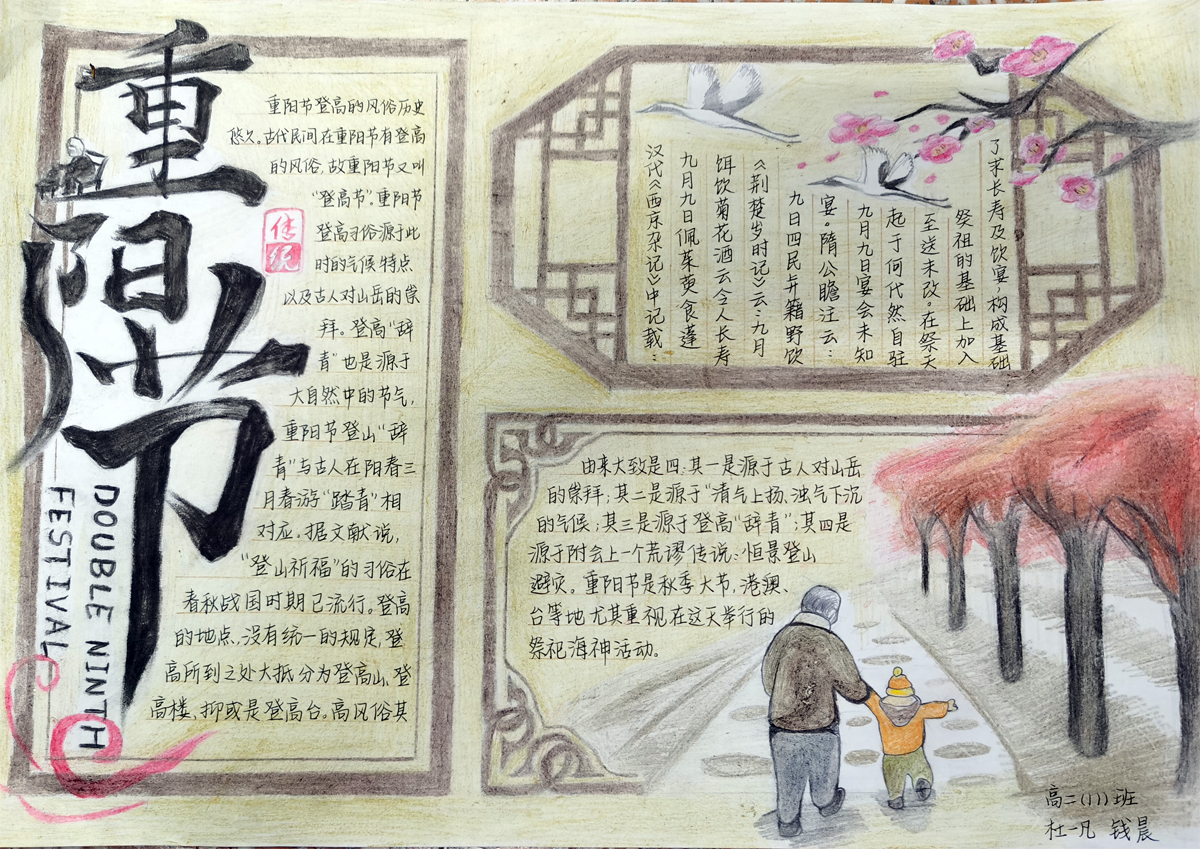 重阳节
DOUBLE NINTH
FESTIVAL
传统
重阳节登高的风俗历史
悠久。古代民间在重阳节有登高
的风俗，故重阳节又叫
“登高节”。重阳节
登高习俗源于此
时的气候特点
以及古人对山岳的崇
拜。登高“辞
青”也是源于
大自然中的节气，
重阳节登山“辞
青”与古人在阳春三
月春游“踏青”相
对应。据文献说，
“登山祈福”的习俗在
春秋战国时期已流行。登高
的地点，没有统一的规定，登
高所到之处大抵分为登高山、登
高楼，抑或是登高台。高风俗其
汉代《西京杂记》中记载：
九月九日佩茱萸食蓬
饵饮菊花酒云令人长寿
《荆楚岁时记》云：九月
九日四民并籍野饮
宴。隋公瞻注云：
九月九日宴会未知
起于何代然自驻
至送未改。在祭天
祭祖的基础上加入
了求长寿及饮宴，构成基础
由来大致是四：其一是源于古人对山岳
的崇拜；其二是源于“清气上扬、浊气下沉
的气候；其三是源于登高“辞青”；其四是
源于附会上一个荒谬传说：恒景登山
避灾。重阳节是秋季大节，港澳、
台等地尤其重视在这天举行的
祭祀海神活动。
高二（11）班
杜一凡 钱晨